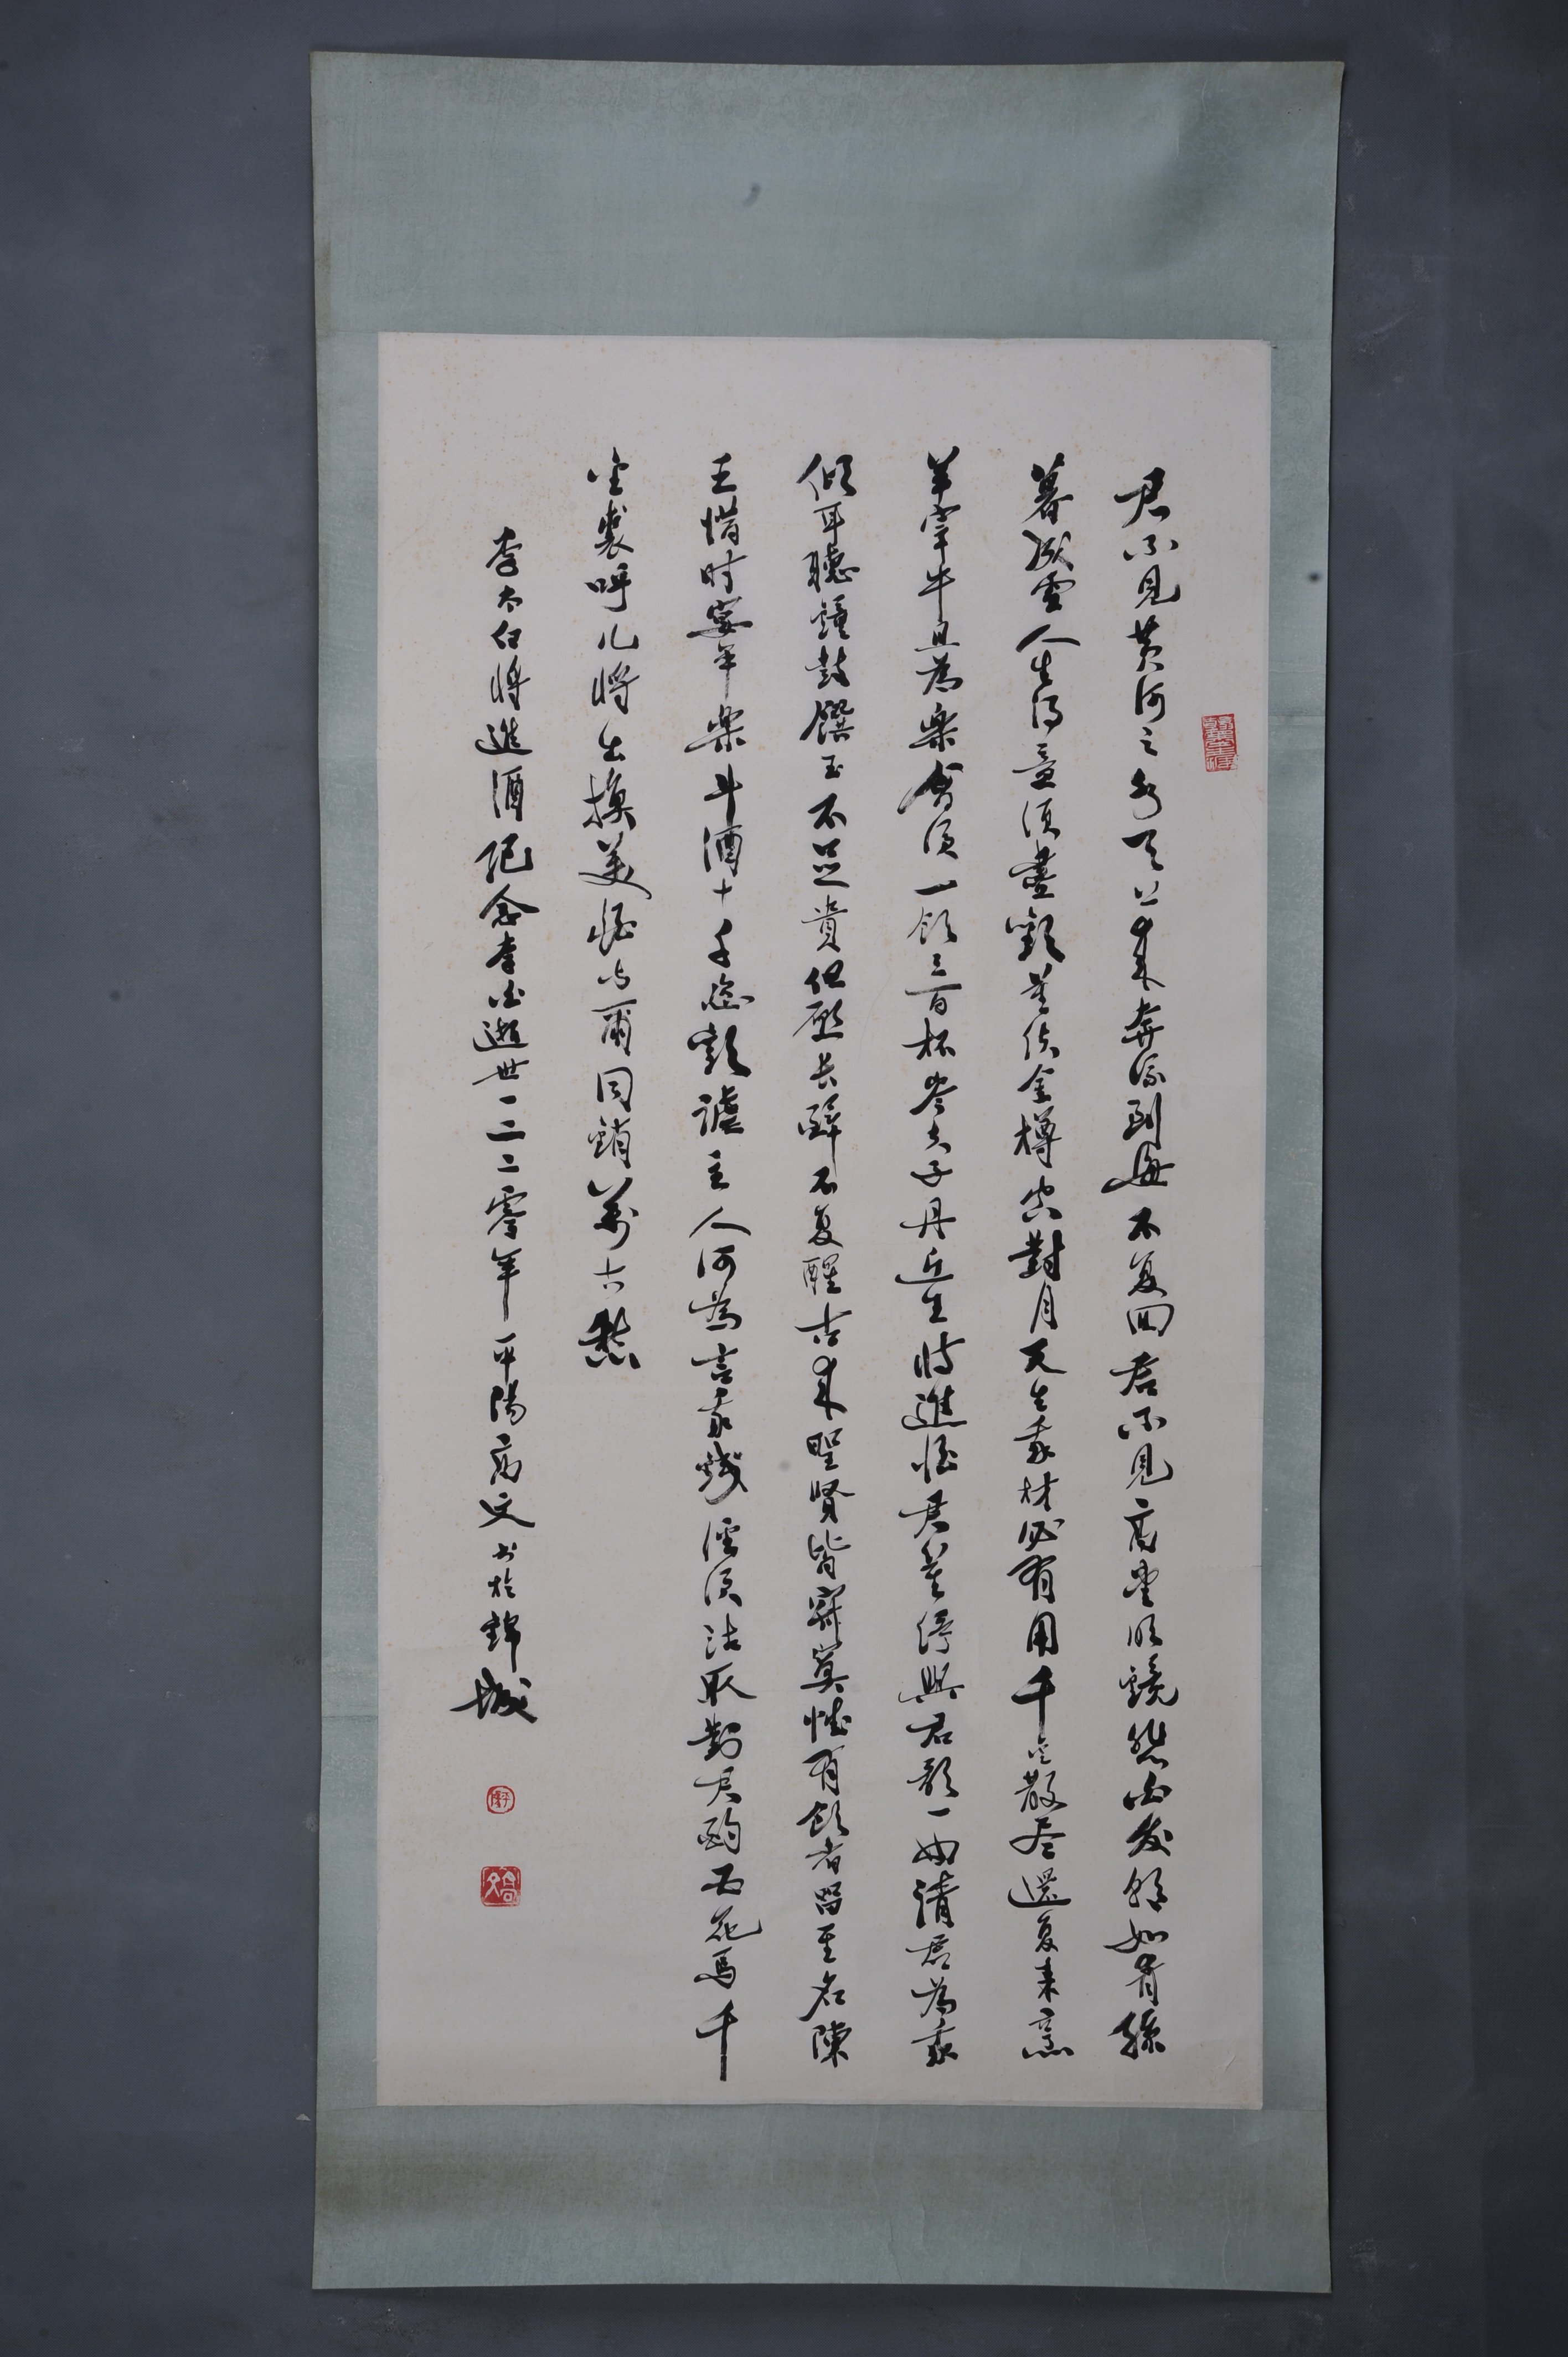 君不見黄河之水天上来奔流到海不复回君不見高堂明鏡悲白发朝如青絲
暮成雪人生得意須盡歡莫使金樽空對月天生我材必有用千金散尽還复来烹
羊宰牛且為樂會須一飲三百杯岑夫子丹丘生將進酒君莫停與君歌一曲請君為我
倾耳聽鐘鼓饌玉不足貴但愿长醉不复醒古来聖賢皆寂寞惟有飲者留其名陳
王惜时宴平樂斗酒十千恣歡謔主人何為言我錢徑須沽取對君酌五花馬千
金裘呼儿將出換美酒与爾同銷萬古愁
李太白將進酒纪念李白逝世一二二零年平陽高文书於錦城